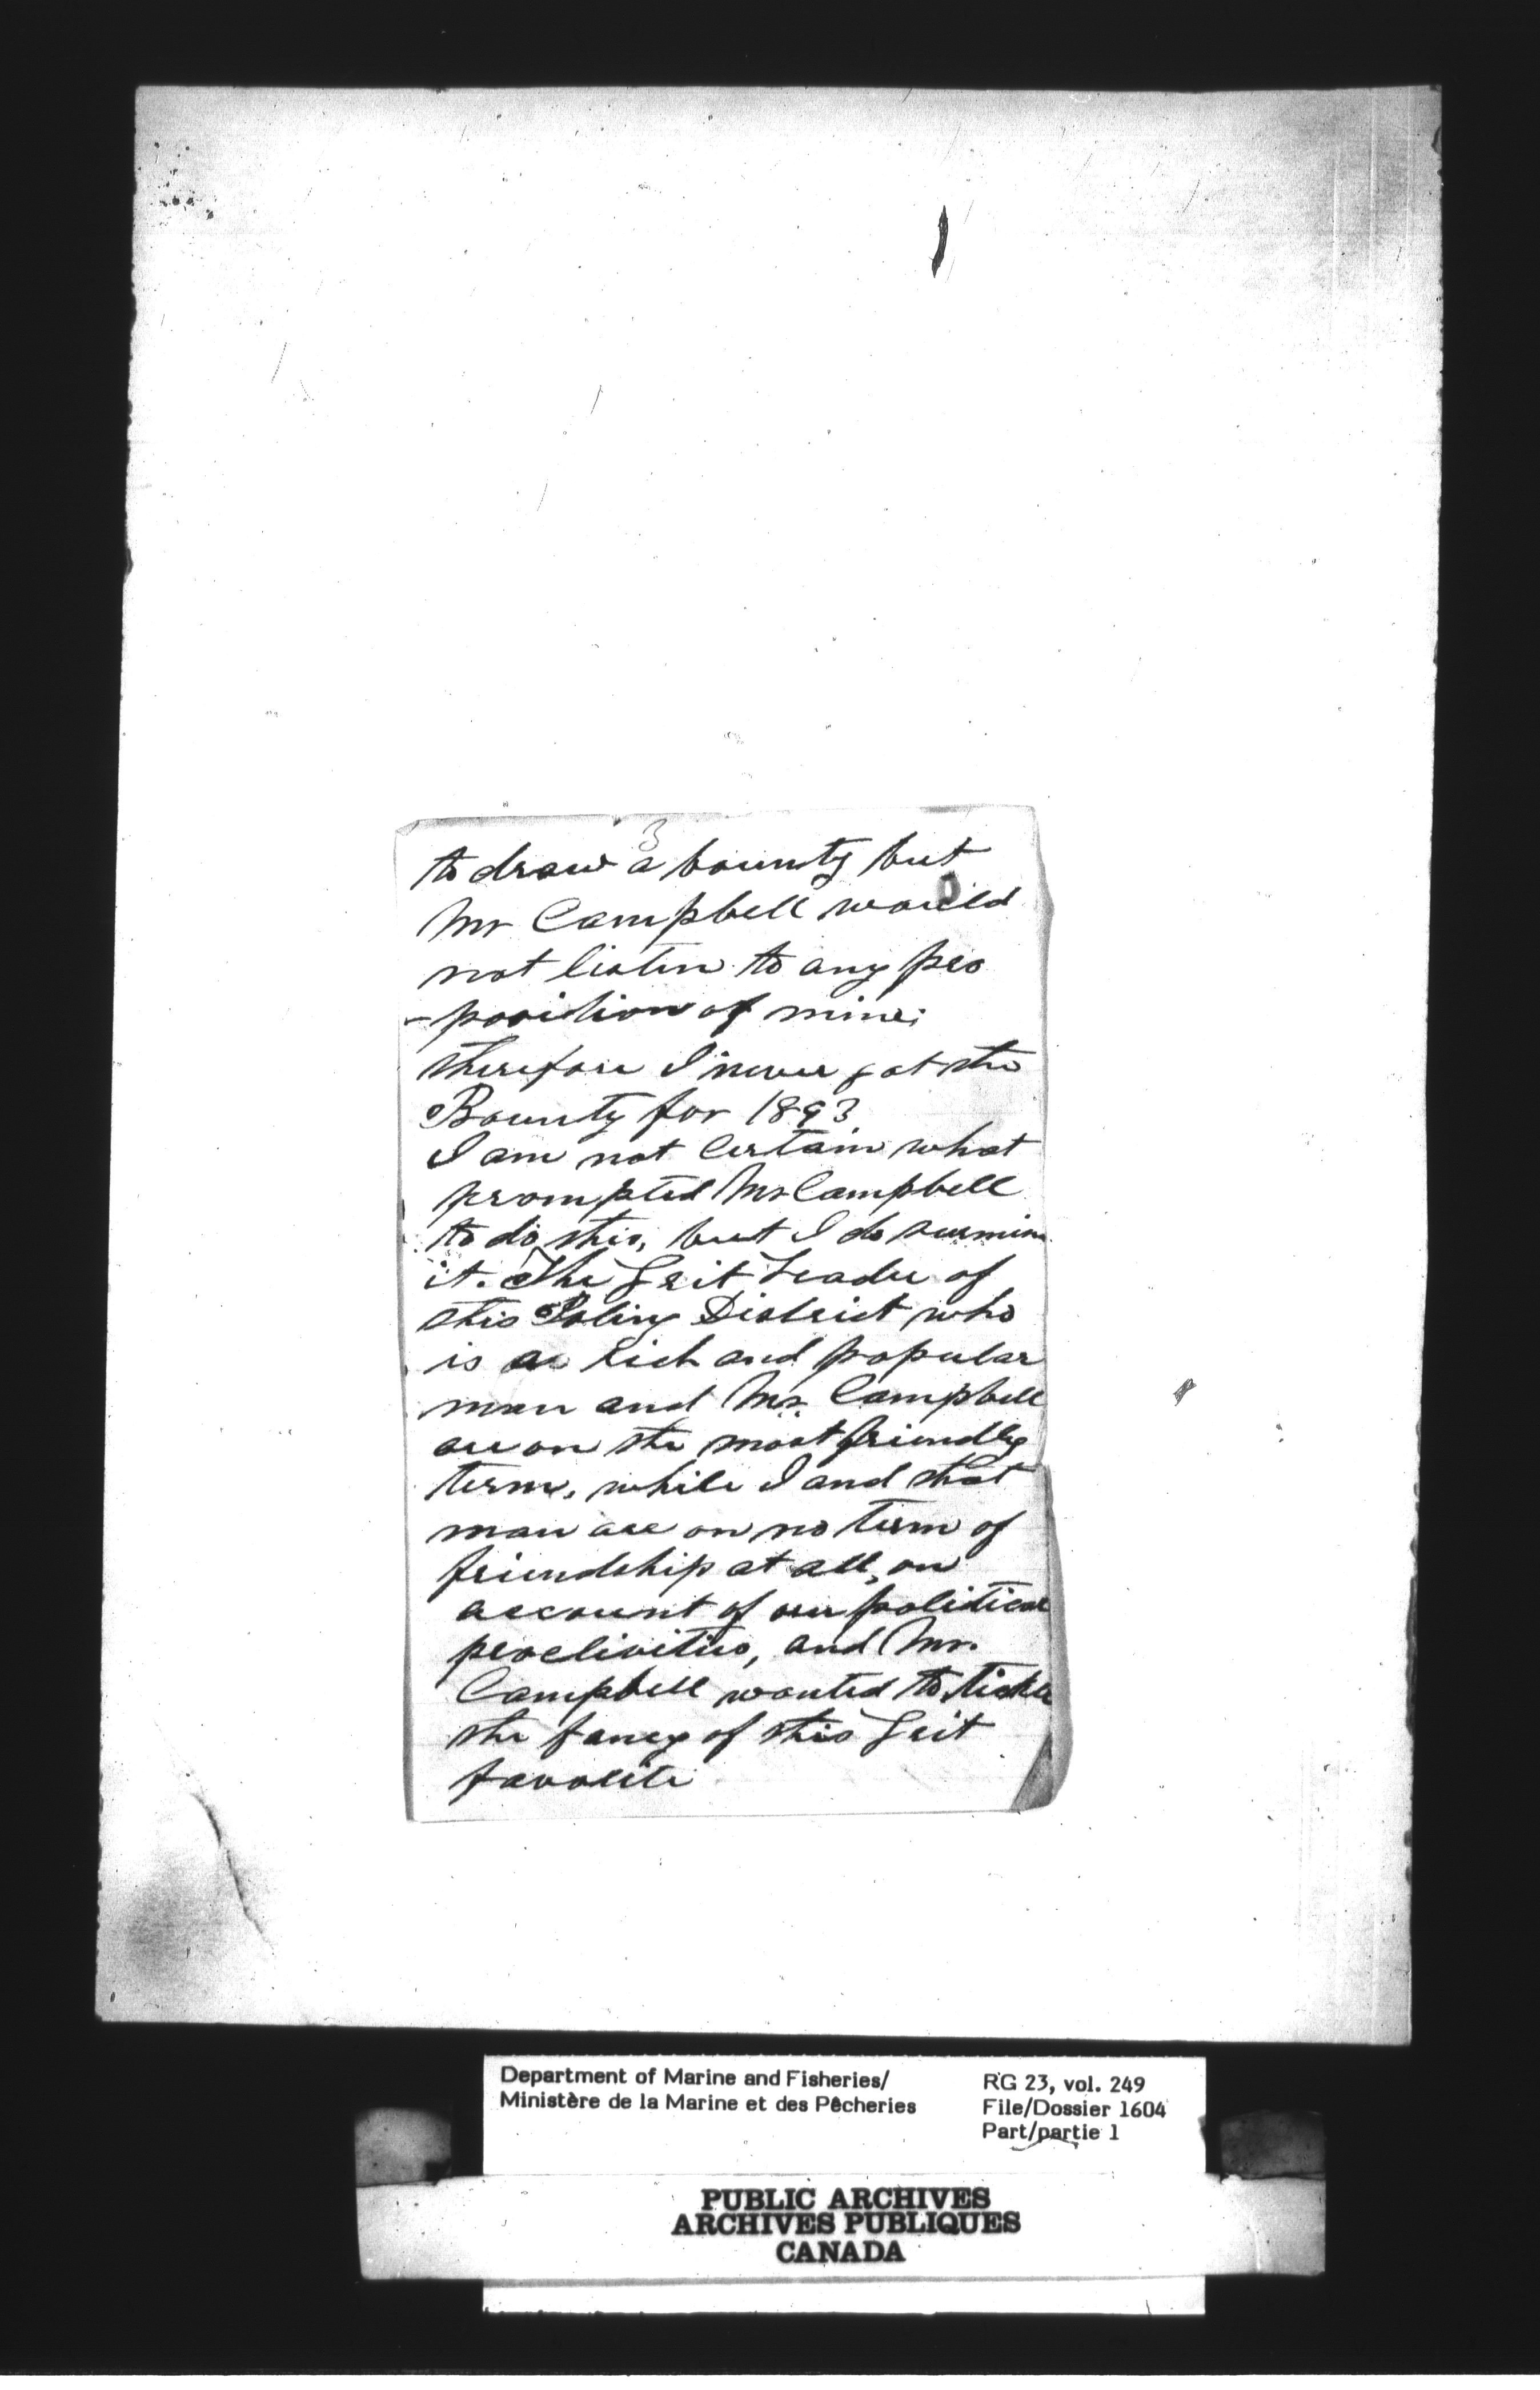 3
to draw a bounty but
Mr Campbell would
not listen to any pro
-position of mine;
therefore I never got the
Bounty for 1893
I am not certain what
prompted Mr Campbell
to do this, but I do surmise
it. The Grit Leader of
this Poling District who
is a rich and popular
man and Mr. Campbell
are on the most friendly
term, while I and that
man are on no term of
friendship at all, on
account of our political
proclivities, and Mr.
Campbell wanted to tickle
the fancy of this Grit
favorite
Department of Marine and Fisheries/
Ministère de la Marine et des Pêcheries
RG 23, vol. 249
File/Dossier 1604
Part/partie 1
PUBLIC ARCHIVES
ARCHIVES PUBLIQUES
CANADA